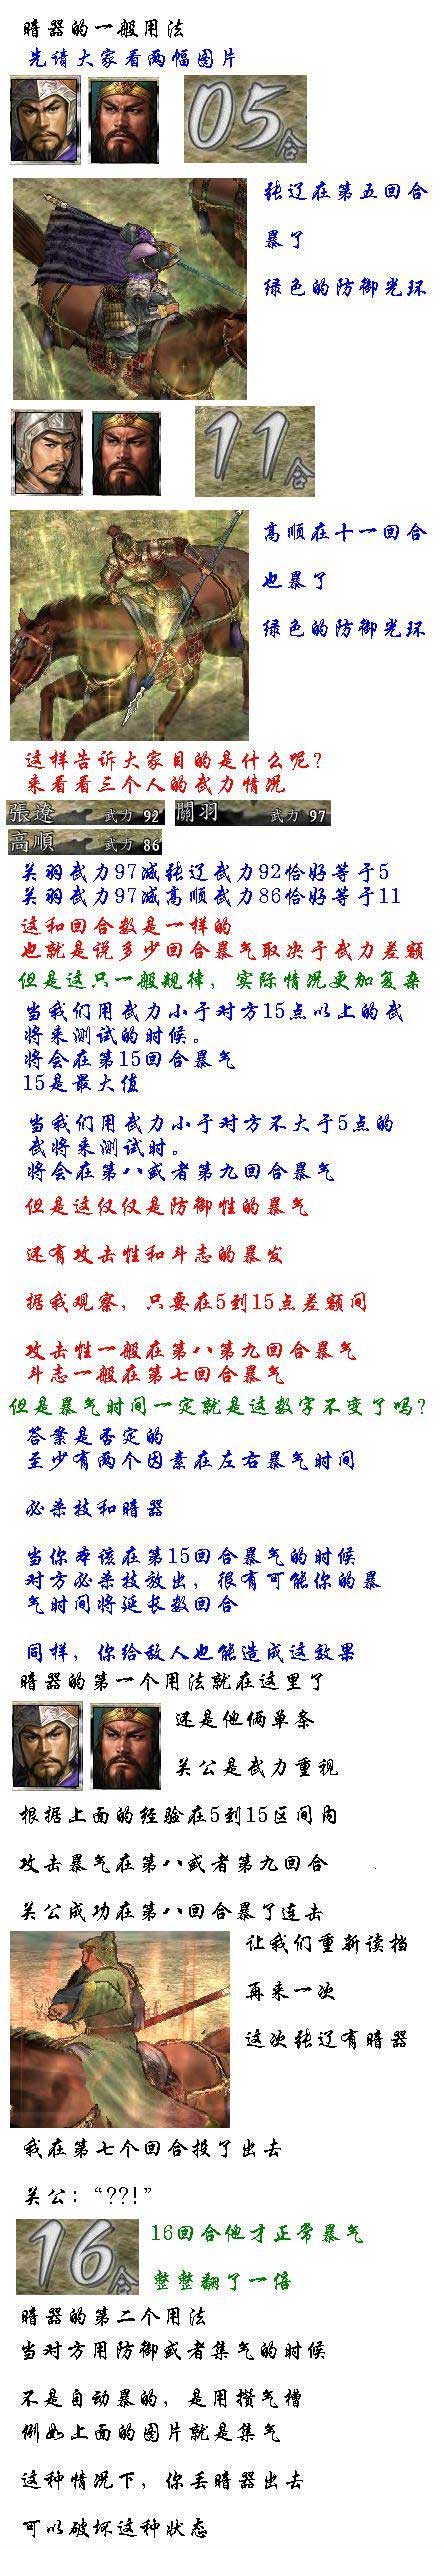 暗器的一般用法
先请大家看两幅图片
05合
张辽在第五回合
暴了
绿色的防御光环
11合
高顺在十一回合
也暴了
绿色的防御光环
这样告诉大家目的是什么呢?
来看看三个人的武力情况
張遼 武力 92 關羽 武力 97
高順 武力 86
关羽武力97减张辽武力92恰好等于5
关羽武力97减高顺武力86恰好等于11
这和回合数是一样的
也就是说多少回合暴气取决于武力差额
但是这只一般规律，实际情况更加复杂
当我们用武力小于对方15点以上的武
将来测试的时候。
将会在第15回合暴气
15是最大值
当我们用武力小于对方不大于5点的
武将来测试时。
将会在第八或者第九回合暴气
但是这仅仅是防御性的暴气
还有攻击性和斗志的暴发
据我观察，只要在5到15点差额间
攻击性一般在第八第九回合暴气
斗志一般在第七回合暴气
但是暴气时间一定就是这数字不变了吗?
答案是否定的
至少有两个因素在左右暴气时间
必杀技和暗器
当你本该在第15回合暴气的时候
对方必杀技放出，很有可能你的暴
气时间将延长数回合
同样，你给敌人也能造成这效果
暗器的第一个用法就在这里了
还是他俩单条
关公是武力重视
根据上面的经验在5到15区间内
攻击暴气在第八或者第九回合
关公成功在第八回合暴了连击
让我们重新读档
再来一次
这次张辽有暗器
我在第七个回合投了出去
关公：“??!”
16合
16回合他才正常暴气
整整翻了一倍
暗器的第二个用法
当对方用防御或者集气的时候
不是自动暴的，是用攒气槽
例如上面的图片就是集气
这种情况下，你丢暗器出去
可以破坏这种状态